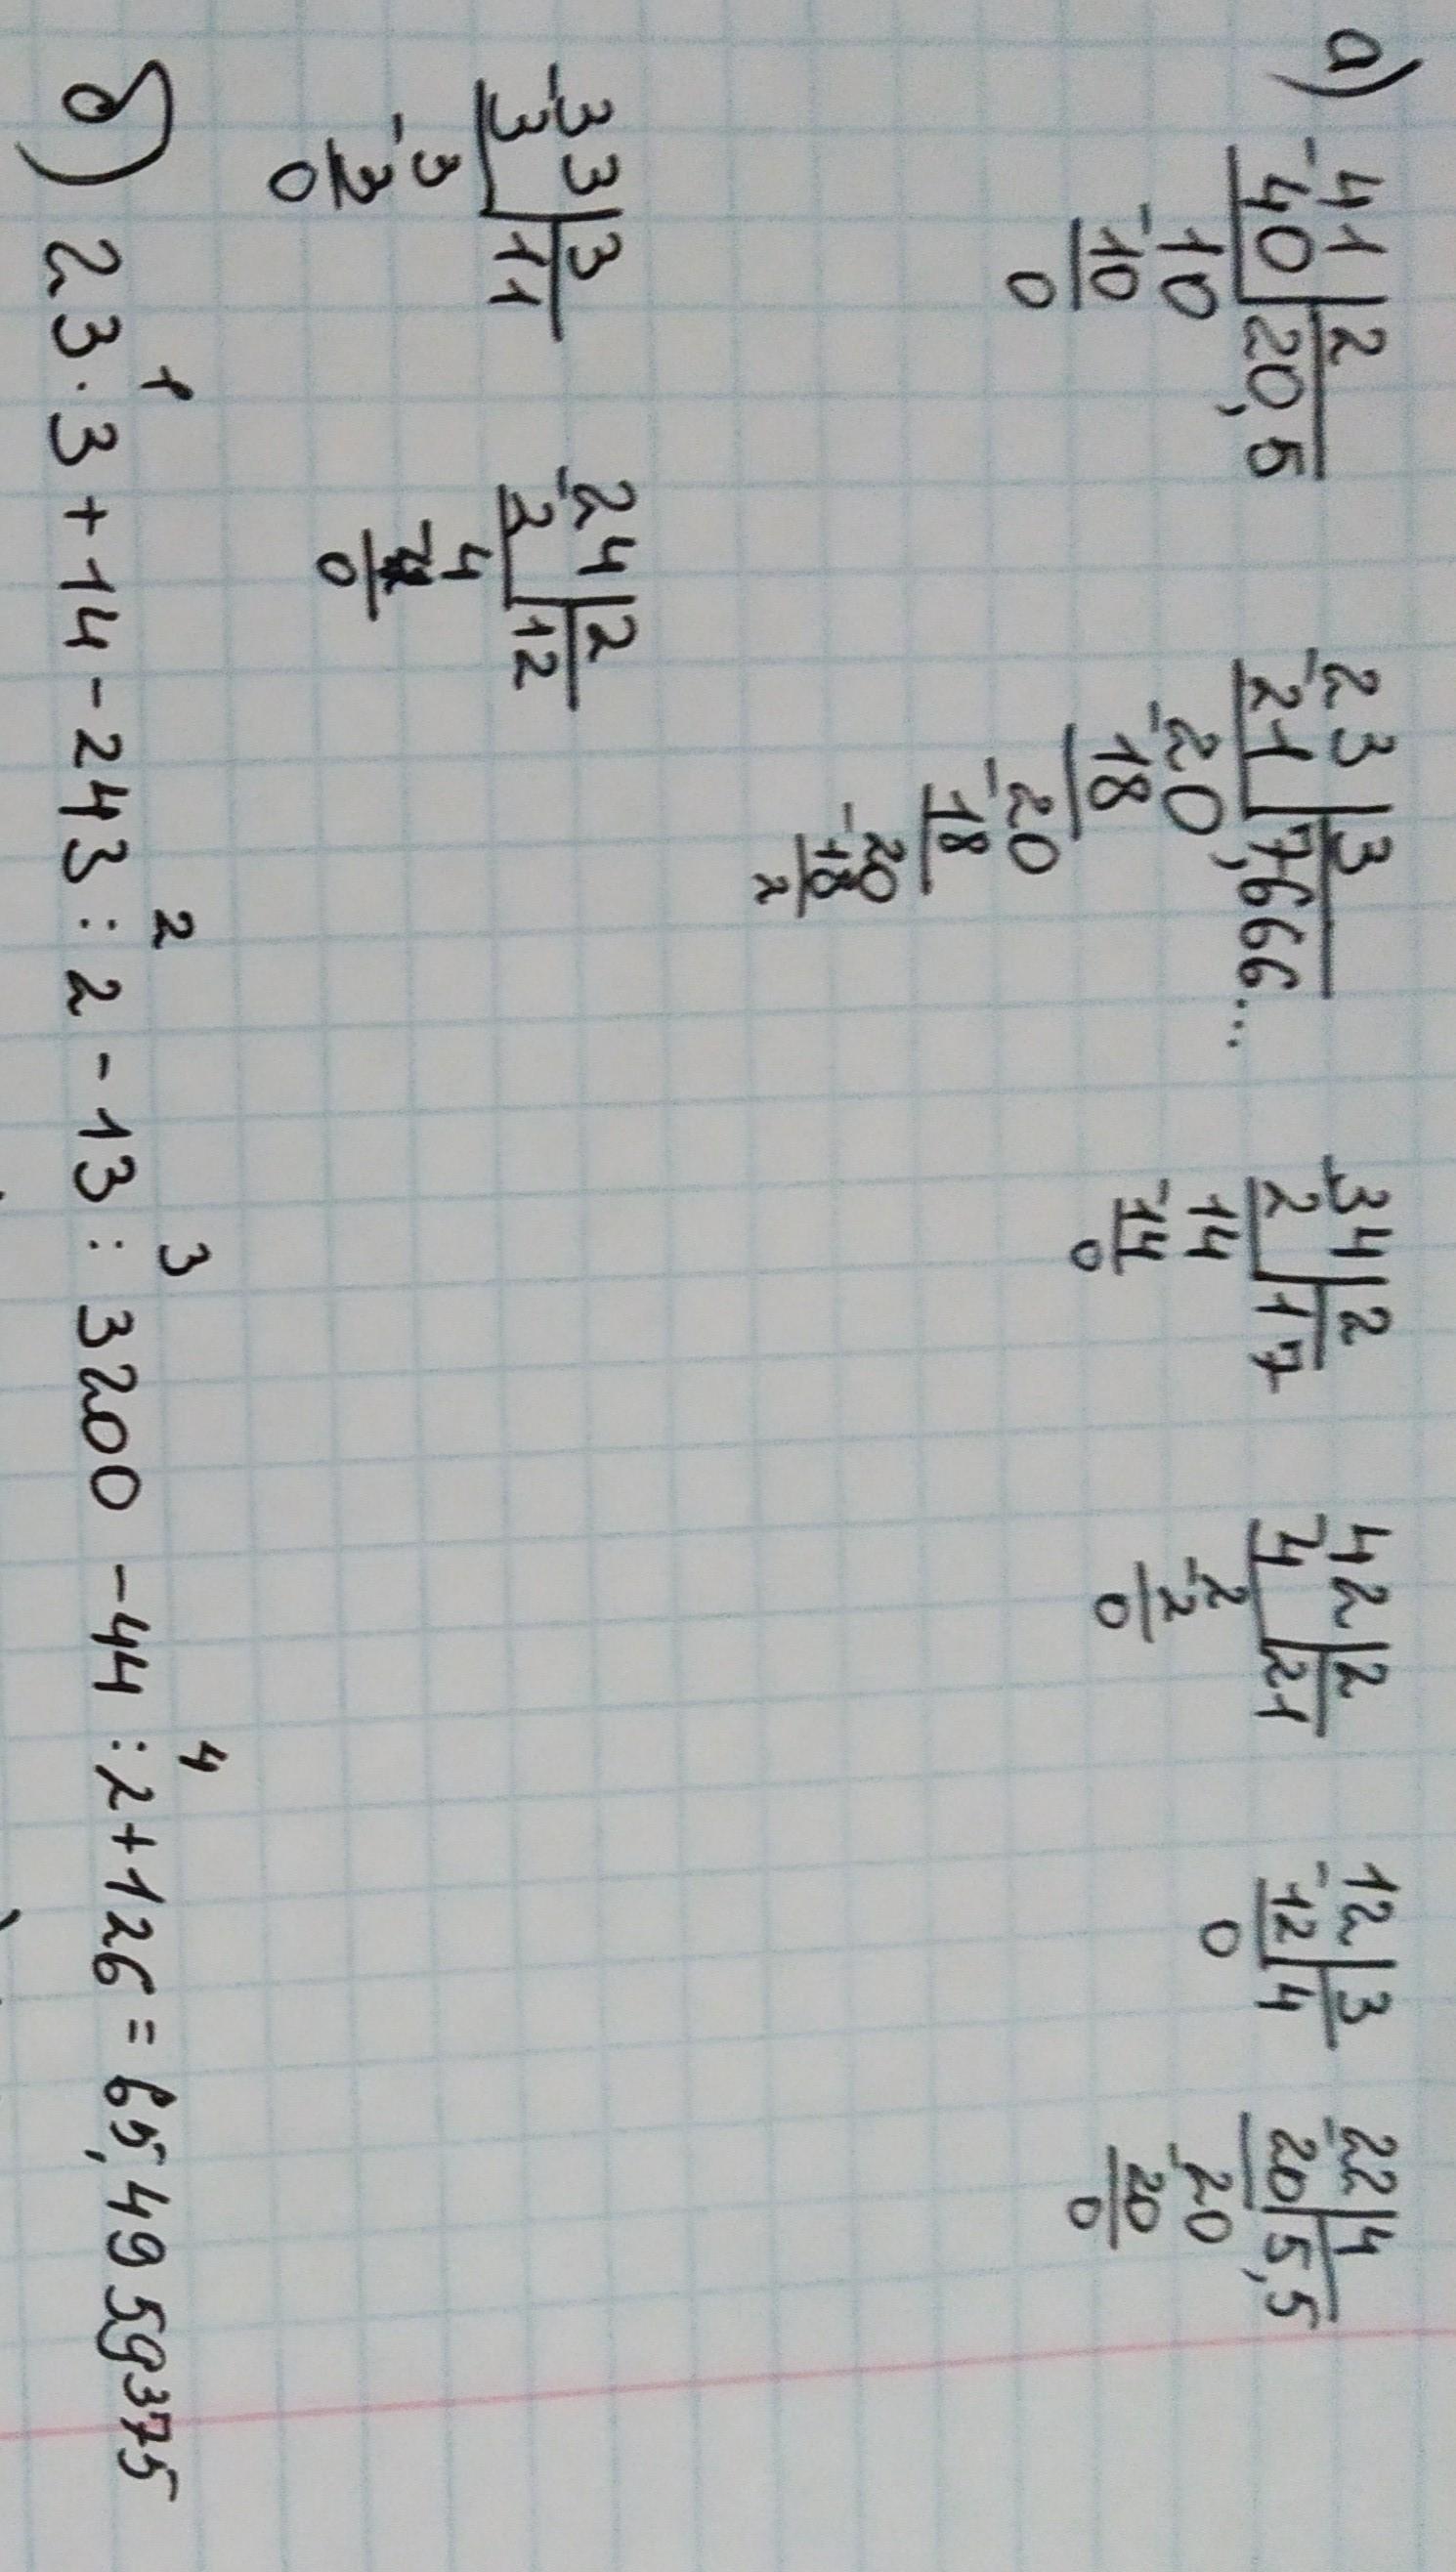 а) 41 | 2 23 | 3 34 | 2 42 | 2 12 | 3 22 | 4
- 40 | 20,5 - 21 | 7,666... - 2 | 17 - 4 | 21 - 12 | 4 - 20 | 5,5
10 20 14 2 0 20
- 10 - 18 - 14 - 2 - 20
0 20 0 0 0
- 18
20
- 18
2
33 | 3 24 | 2
- 3 | 11 - 2 | 12
3 4
- 3 - 4
0 0
1 2 3 4
б) 23 · 3 + 14 - 243 : 2 - 13 : 3200 - 44 : 2 + 126 = 65,4959375